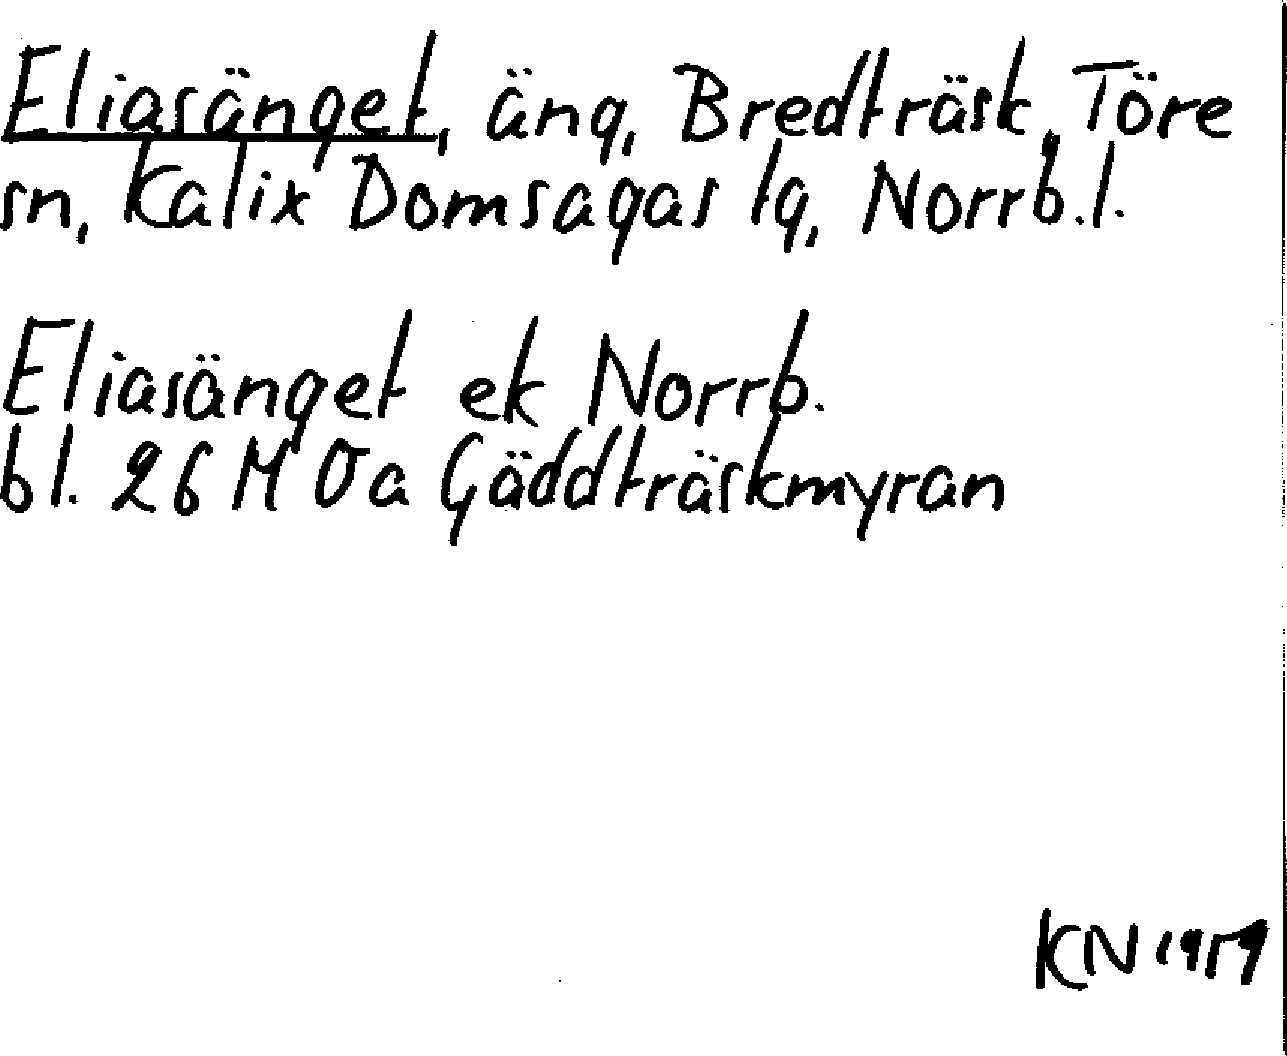 Eliasänget, äng, Bredträsk, Töre
sn, Kalix Domsagas lg, Norrb.l.
Eliasänget ek Norrb.
bl. 26 M 0a Gäddträskmyran
KN 1959